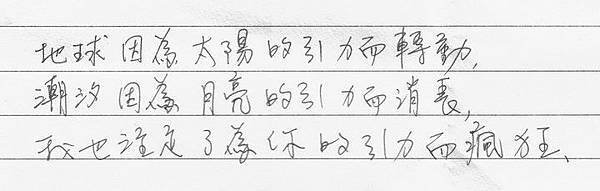 地球因為太陽的引力而轉動,
潮汐因為月亮的引力而消長,
我也注定了為你的引力而瘋狂、